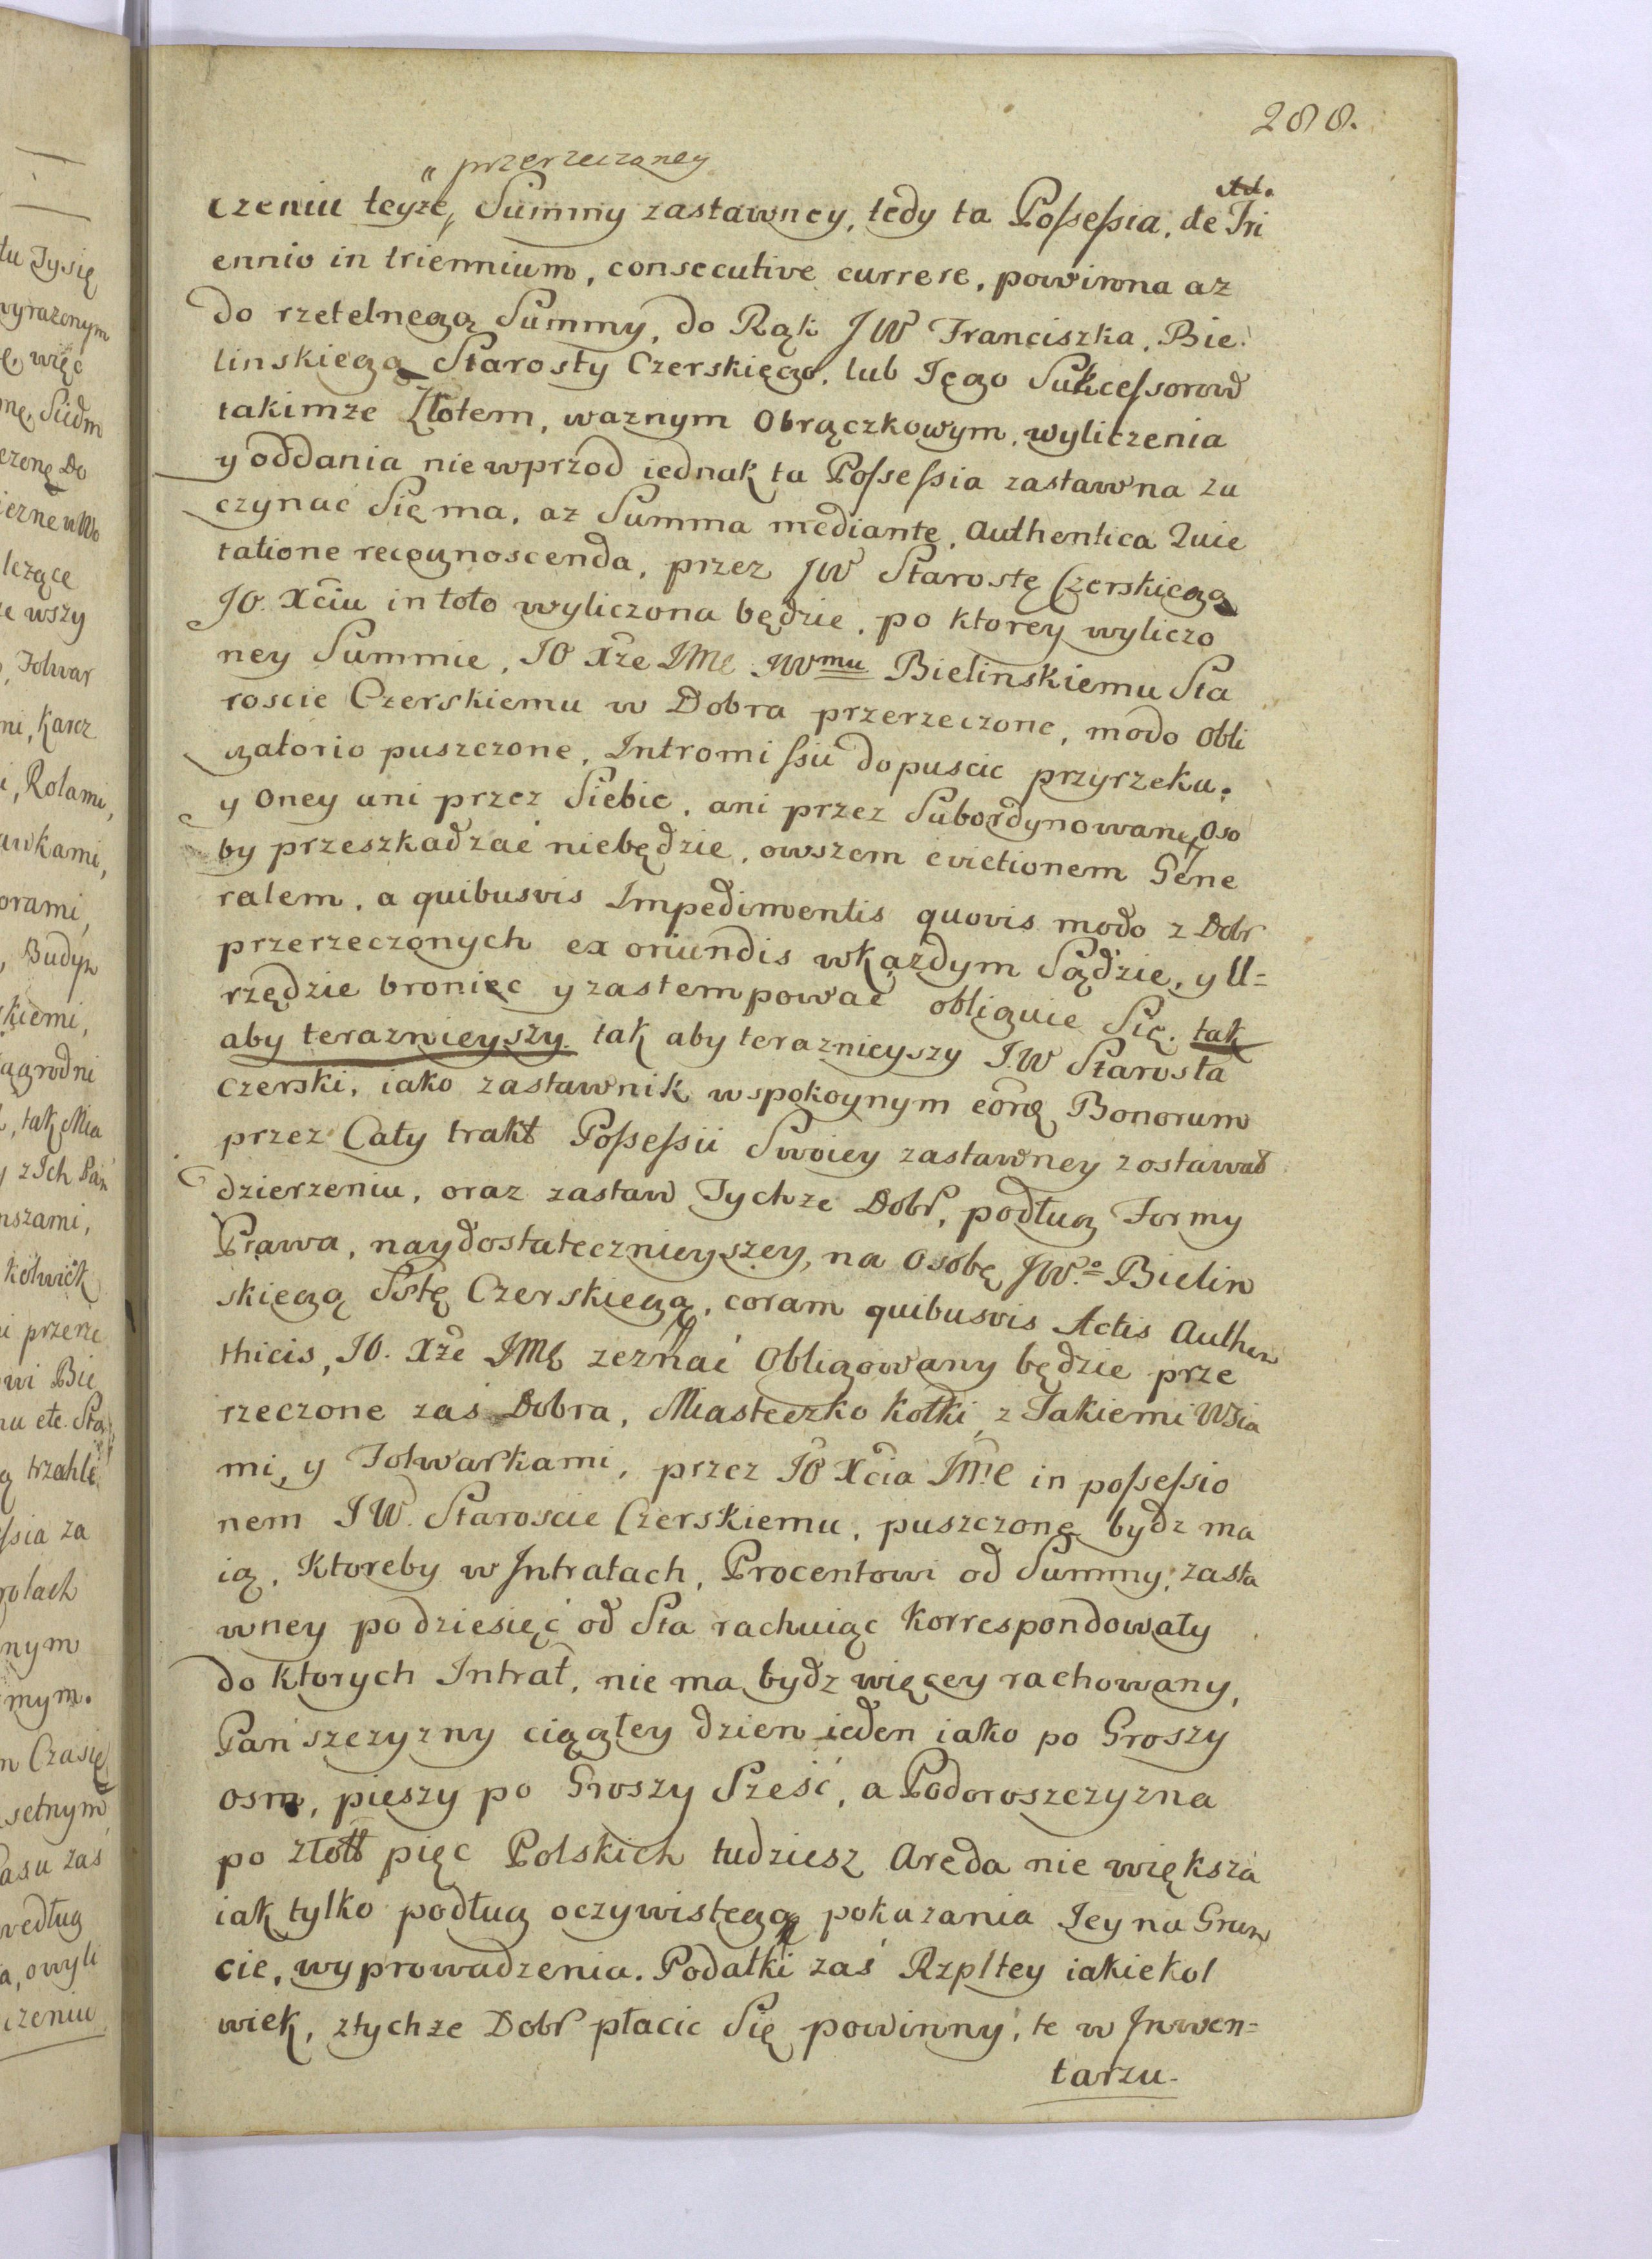 288.
„ przerzeczoney
czeniu teyże, Summy zastawney, tedy ta Poſseſsia, de Tri
ennio in triennium, consecutive currere, powinna az
do rzetelnego Summy, do Rąk JW Franciszka, Bie
linskiego Starosty Czerskięgo, lub Jęgo Sukceſsorow
takimze Złotem, waznym Obrączkowym, wyliczenia
y oddania nie wprzod iednak ta Poſseſsia zastawna za
czynać Się ma, az Summa mediante, Authentica Quie
tatione recognoscenda, przez JW Starostę Czerskiego
JO. Xciu in toto wyliczona będzie, po ktorey wyliczo
ney Summie, JO Xze JMC JWmu Bielinskiemu Sta
roscie Czerskiemu w Dobra przerzeczone, modo Obli
gatorio puszczone, Intromiſsii dopuscic przyrzeka,
y Oney ani przez Siebie, ani przez Subordynowanę Oso
by przeszkadzać niebędzie, owszem evictionem Gene
ralem, a quibusvis Impedimentis quovis modo z Dobr
przerzeczonych ex oriundis wkażdym Sądzie, y U=
rzędzie bronięc y zastempować obliguie Się. tak
aby teraznieyszy. tak aby teraznieyszy J.W Starosta
czerski, iako zastawnik w spokoynym eorū Bonorum
przez Cały trakt Poſseſsii Swoiey zastawney zostawał
dzierzeniu, oraz zastaw Tychze Dobr, podług Formy
Prawa, naydostatecznieyszey, na Osobę JW.o Bielin
skięgo Sstę Czerskiego, coram quibusvis Actis Authen
thicis, JO. Xże JMC zeznać Obligowany będzie prze
rzeczone zaś Dobra, Miasteczko Kołki, z Takiemi Wsia
mi, y Folwarkami, przez JO Xcia JMC in poſseſsio
nem JW. Staroscie Czerskiemu, puszczone bydz ma
ią, Ktoreby w Intratach, Procentowi od Summy, zasta
wney po dziesięć od Sta rachuiąc Korrespondowały
do ktorych Intrat, nie ma bydz więcey rachowany,
Pańszczyzny ciągłey dzien ieden iako po Groszy
osm, pieszy po Groszy Sześć, a Podoroszczyzna
po złott pięc Polskich tudziesz Aręda nie większa
iak tylko podług oczywistego pokazania Jey na Grun
cie, wyprowadzenia. Podatki zaś Rzpltey iakiekol
wiek, ztychze Dobr płacic Się powinny, te w Inwen=
tarzu.